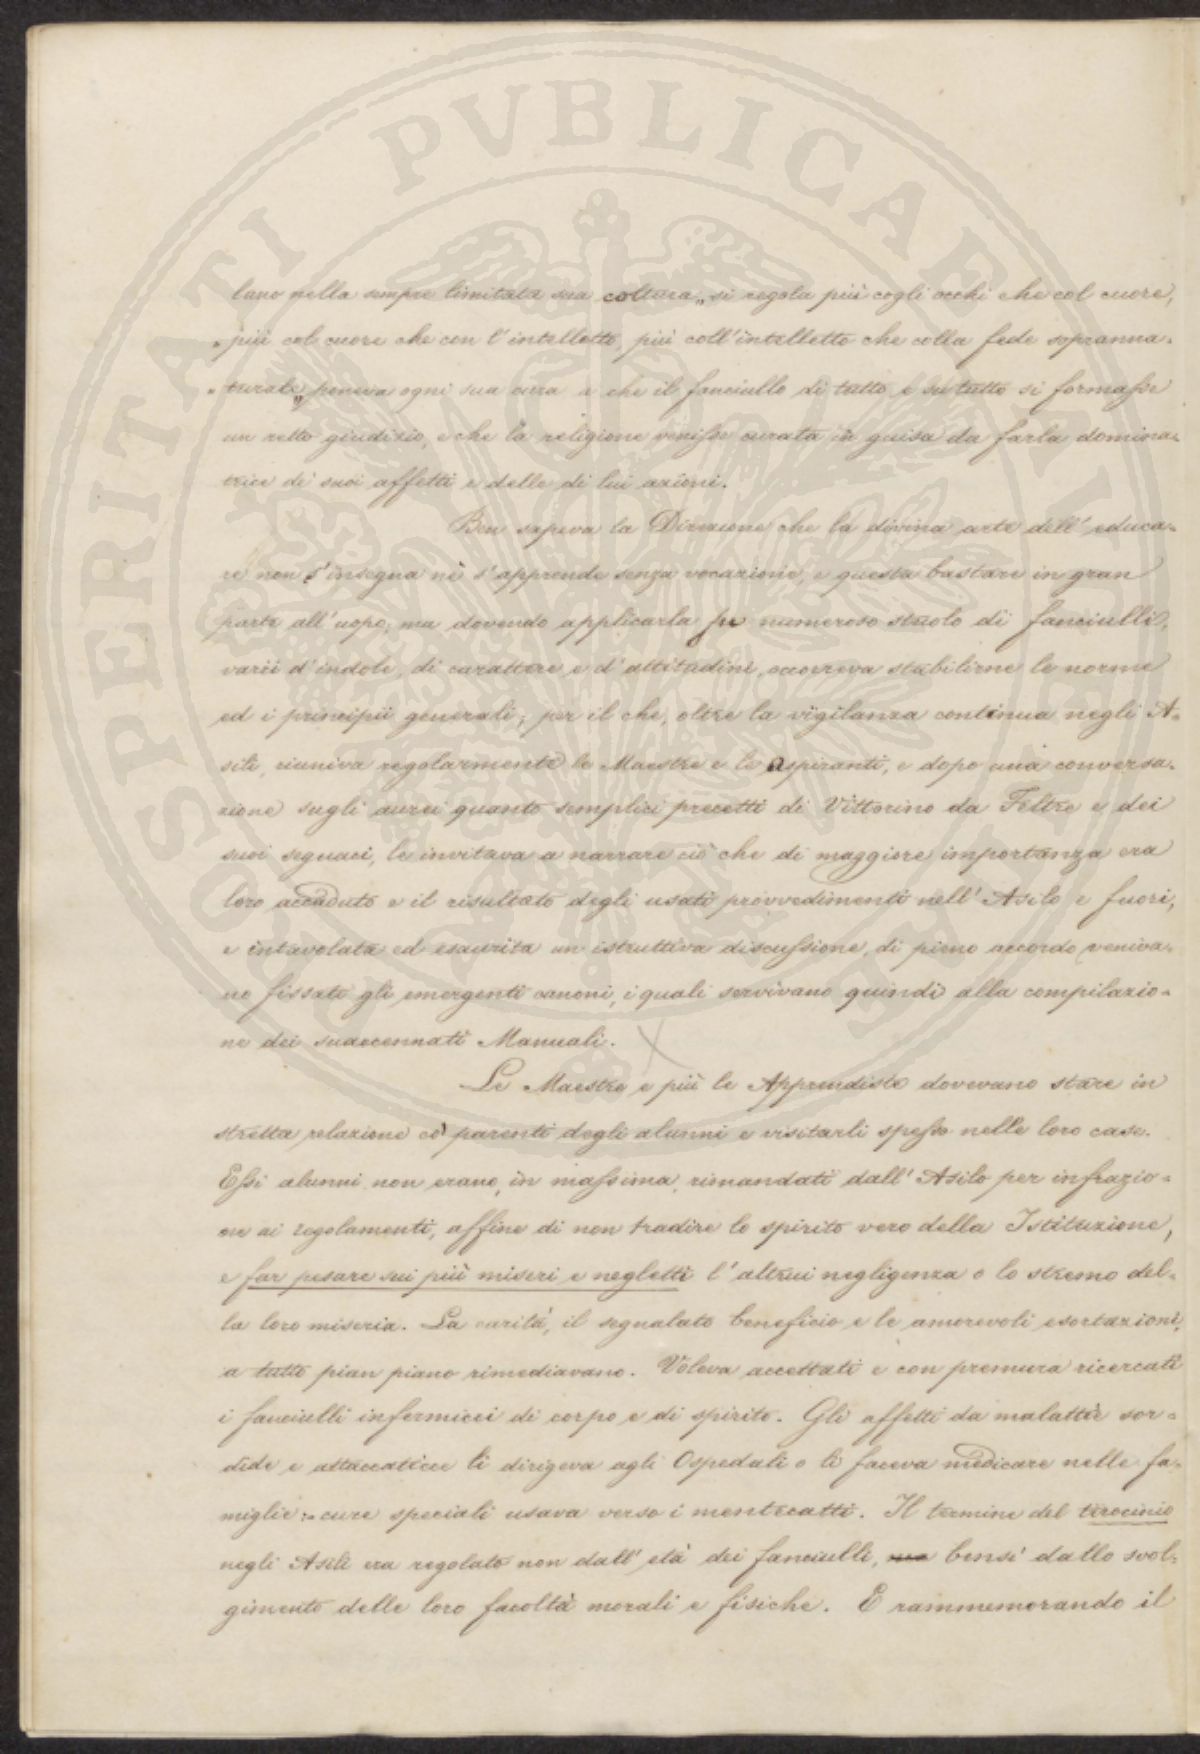 lano nella sempre limitata sua coltura „ si regola più cogli occhi che col cuore,
„ più col cuore che con l'intelletto, più coll'intelletto che colla fede sopranna-
„ turale „ poneva ogni sua cura a che il fanciullo di tutto e su tutto si formasse
un retto giudizio, e che la religione venisse curata in guisa da farla domina-
trice de' suoi affetti e delle di lui azioni.
Ben sapeva la Direzione che la divina arte dell'educa-
re non s'insegna nè s'apprende senza vocazione, e questa bastare in gran
parte all'uopo; ma dovendo applicarla su numeroso stuolo di fanciulli,
varii d'indole, di carattere e d'attitudini, occorreva stabilirne le norme
ed i principii generali; per il che, oltre la vigilanza continua negli A-
sili, riuniva regolarmente le Maestre e le aspiranti, e dopo una conversa-
zione sugli aurei quanto semplici precetti di Vittorino da Feltre e dei
suoi seguaci, le invitava a narrare ciò che di maggiore importanza era
loro accaduto e il risultato degli usati provvedimenti nell'Asilo e fuori,
e intavolata ed esaurita un istruttiva discussione, di pieno accordo veniva-
no fissati gli emergenti canoni, i quali servivano quindi alla compilazio-
ne dei suaccennati Manuali.
Le Maestre e più le Apprendiste dovevano stare in
stretta relazione co' parenti degli alunni e visitarli spesso nelle loro case.
Essi alunni non erano, in massima, rimandati dall'Asilo per infrazio-
ne ai regolamenti, affine di non tradire lo spirito vero della Istituzione,
e far pesare sui più miseri e negletti l'altrui negligenza o lo stremo del-
la loro miseria. La carità, il segnalato beneficio e le amorevoli esortazioni,
a tutto pian piano rimediavano. Voleva accettati e con premura ricercati
i fanciulli infermicci di corpo e di spirito. Gli affetti da malattie sor-
dide e attaccaticce li dirigeva agli Ospedali o li faceva medicare nelle fa-
miglie:- cure speciali usava verso i mentecatti. Il termine del tirocinio
negli Asili era regolato non dall'età dei fanciulli, ma bensì dallo svol-
gimento delle loro facoltà morali e fisiche. E rammemorando il
SOSPERITATI PVBLICAE AVGENDAE